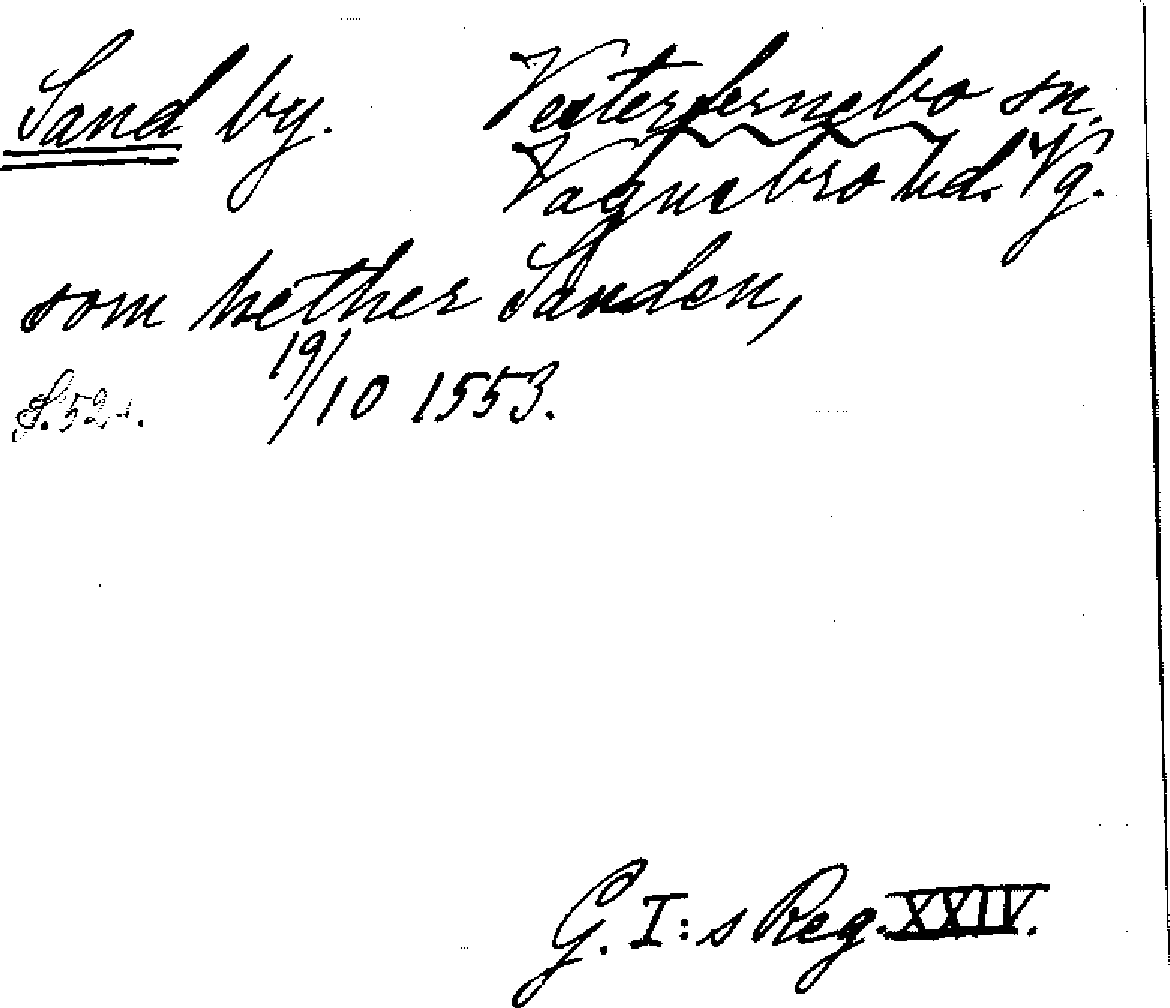 Sand by. Vesterfernebo sn.
Vagnsbro hd. Vg.
som hether Sanden,
19/10 1553.
G. I:s Reg. XXIV.